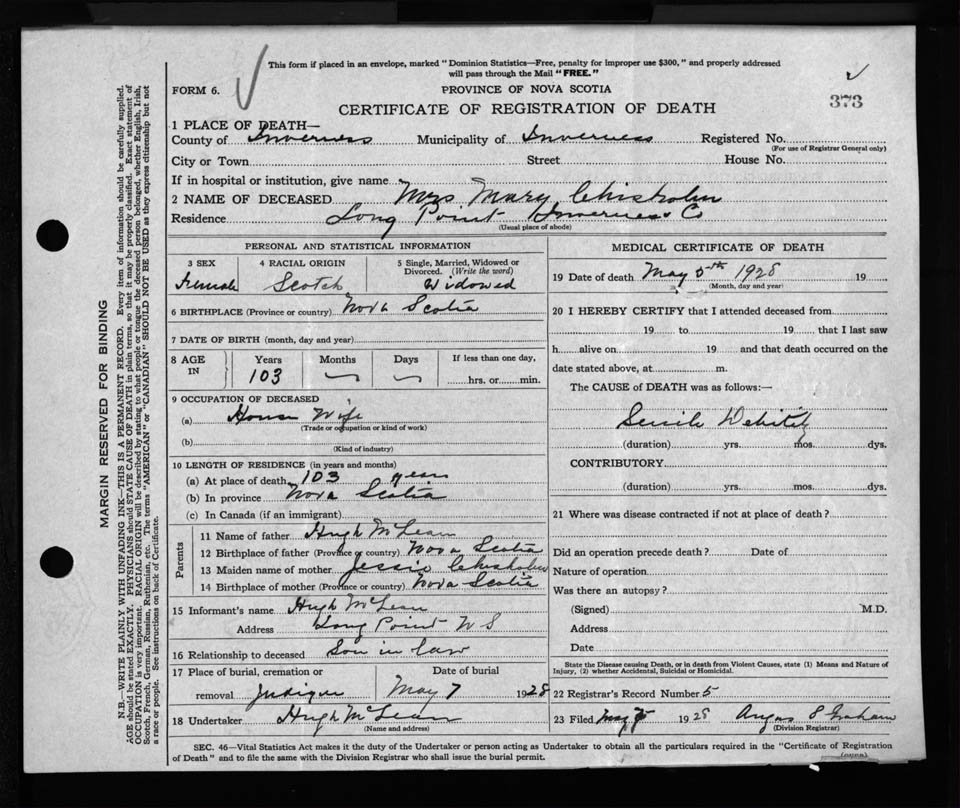 This form if placed in an envelope, marked "Dominion Statistics—Free, penalty for improper use $300," and properly addressed
will pass through the Mail "FREE."
FORM 6.
PROVINCE OF NOVA SCOTIA
373
CERTIFICATE OF REGISTRATION OF DEATH
1 PLACE OF DEATH—
County of Inverness Municipality of Inverness Registered No.
(For use of Registrar General only)
City or Town Street House No.
If in hospital or institution, give name
2 NAME OF DECEASED Mrs Mary Chisholm
Residence Long Point Inverness Co
(Usual place of abode)
PERSONAL AND STATISTICAL INFORMATION
3 SEX 4 RACIAL ORIGIN 5 Single, Married, Widowed or
Divorced. (Write the word)
Female Scotch Widowed
6 BIRTHPLACE (Province or country) Nova Scotia
7 DATE OF BIRTH (month, day and year)
8 AGE IN Years Months Days If less than one day,
103 hrs. or min.
9 OCCUPATION OF DECEASED
(a) House Wife
(Trade or occupation or kind of work)
(b)
(Kind of industry)
10 LENGTH OF RESIDENCE (in years and months)
(a) At place of death 103 years
(b) In province Nova Scotia
(c) In Canada (if an immigrant)
Parents
11 Name of father Hugh McLean
12 Birthplace of father (Province or country) Nova Scotia
13 Maiden name of mother Jessie Chisholm
14 Birthplace of mother (Province or country) Nova Scotia
15 Informant's name Hugh McLean
Address Long Point N S
16 Relationship to deceased Son in law
17 Place of burial, cremation or Date of burial
removal Judique May 7 1928
18 Undertaker Hugh McLean
(Name and address)
MEDICAL CERTIFICATE OF DEATH
19 Date of death May 5th 1928 19
(Month, day and year)
20 I HEREBY CERTIFY that I attended deceased from
19 to 19 that I last saw
h alive on 19 and that death occurred on the
date stated above, at m.
The CAUSE of DEATH was as follows:—
Senile Debility
(duration) yrs. mos. dys.
CONTRIBUTORY
(duration) yrs. mos. dys.
21 Where was disease contracted if not at place of death?
Did an operation precede death? Date of
Nature of operation
Was there an autopsy?
(Signed) M.D.
Address
Date
State the Disease causing Death, or in death from Violent Causes, state (1) Means and Nature of
Injury, (2) whether Accidental, Suicidal or Homicidal.
22 Registrar's Record Number 5
23 Filed May 1928 Angus S Graham
(Division Registrar)
SEC. 46—Vital Statistics Act makes it the duty of the Undertaker or person acting as Undertaker to obtain all the particulars required in the "Certificate of Registration
of Death" and to file the same with the Division Registrar who shall issue the burial permit.
(OVER)
MARGIN RESERVED FOR BINDING
N.B.—WRITE PLAINLY WITH UNFADING INK—THIS IS A PERMANENT RECORD. Every item of information should be carefully supplied.
AGE should be stated EXACTLY. PHYSICIANS should STATE CAUSE OF DEATH in plain terms, so that it may be properly classified. Exact statement of
OCCUPATION is very important. RACIAL ORIGIN will be described by stating to what people or tongue the deceased person belonged, whether English, Irish,
Scotch, French, German, Russian, Ruthenian, etc. The terms "AMERICAN" or "CANADIAN" SHOULD NOT BE USED as they express citizenship but not
a race or people. See instructions on back of Certificate.